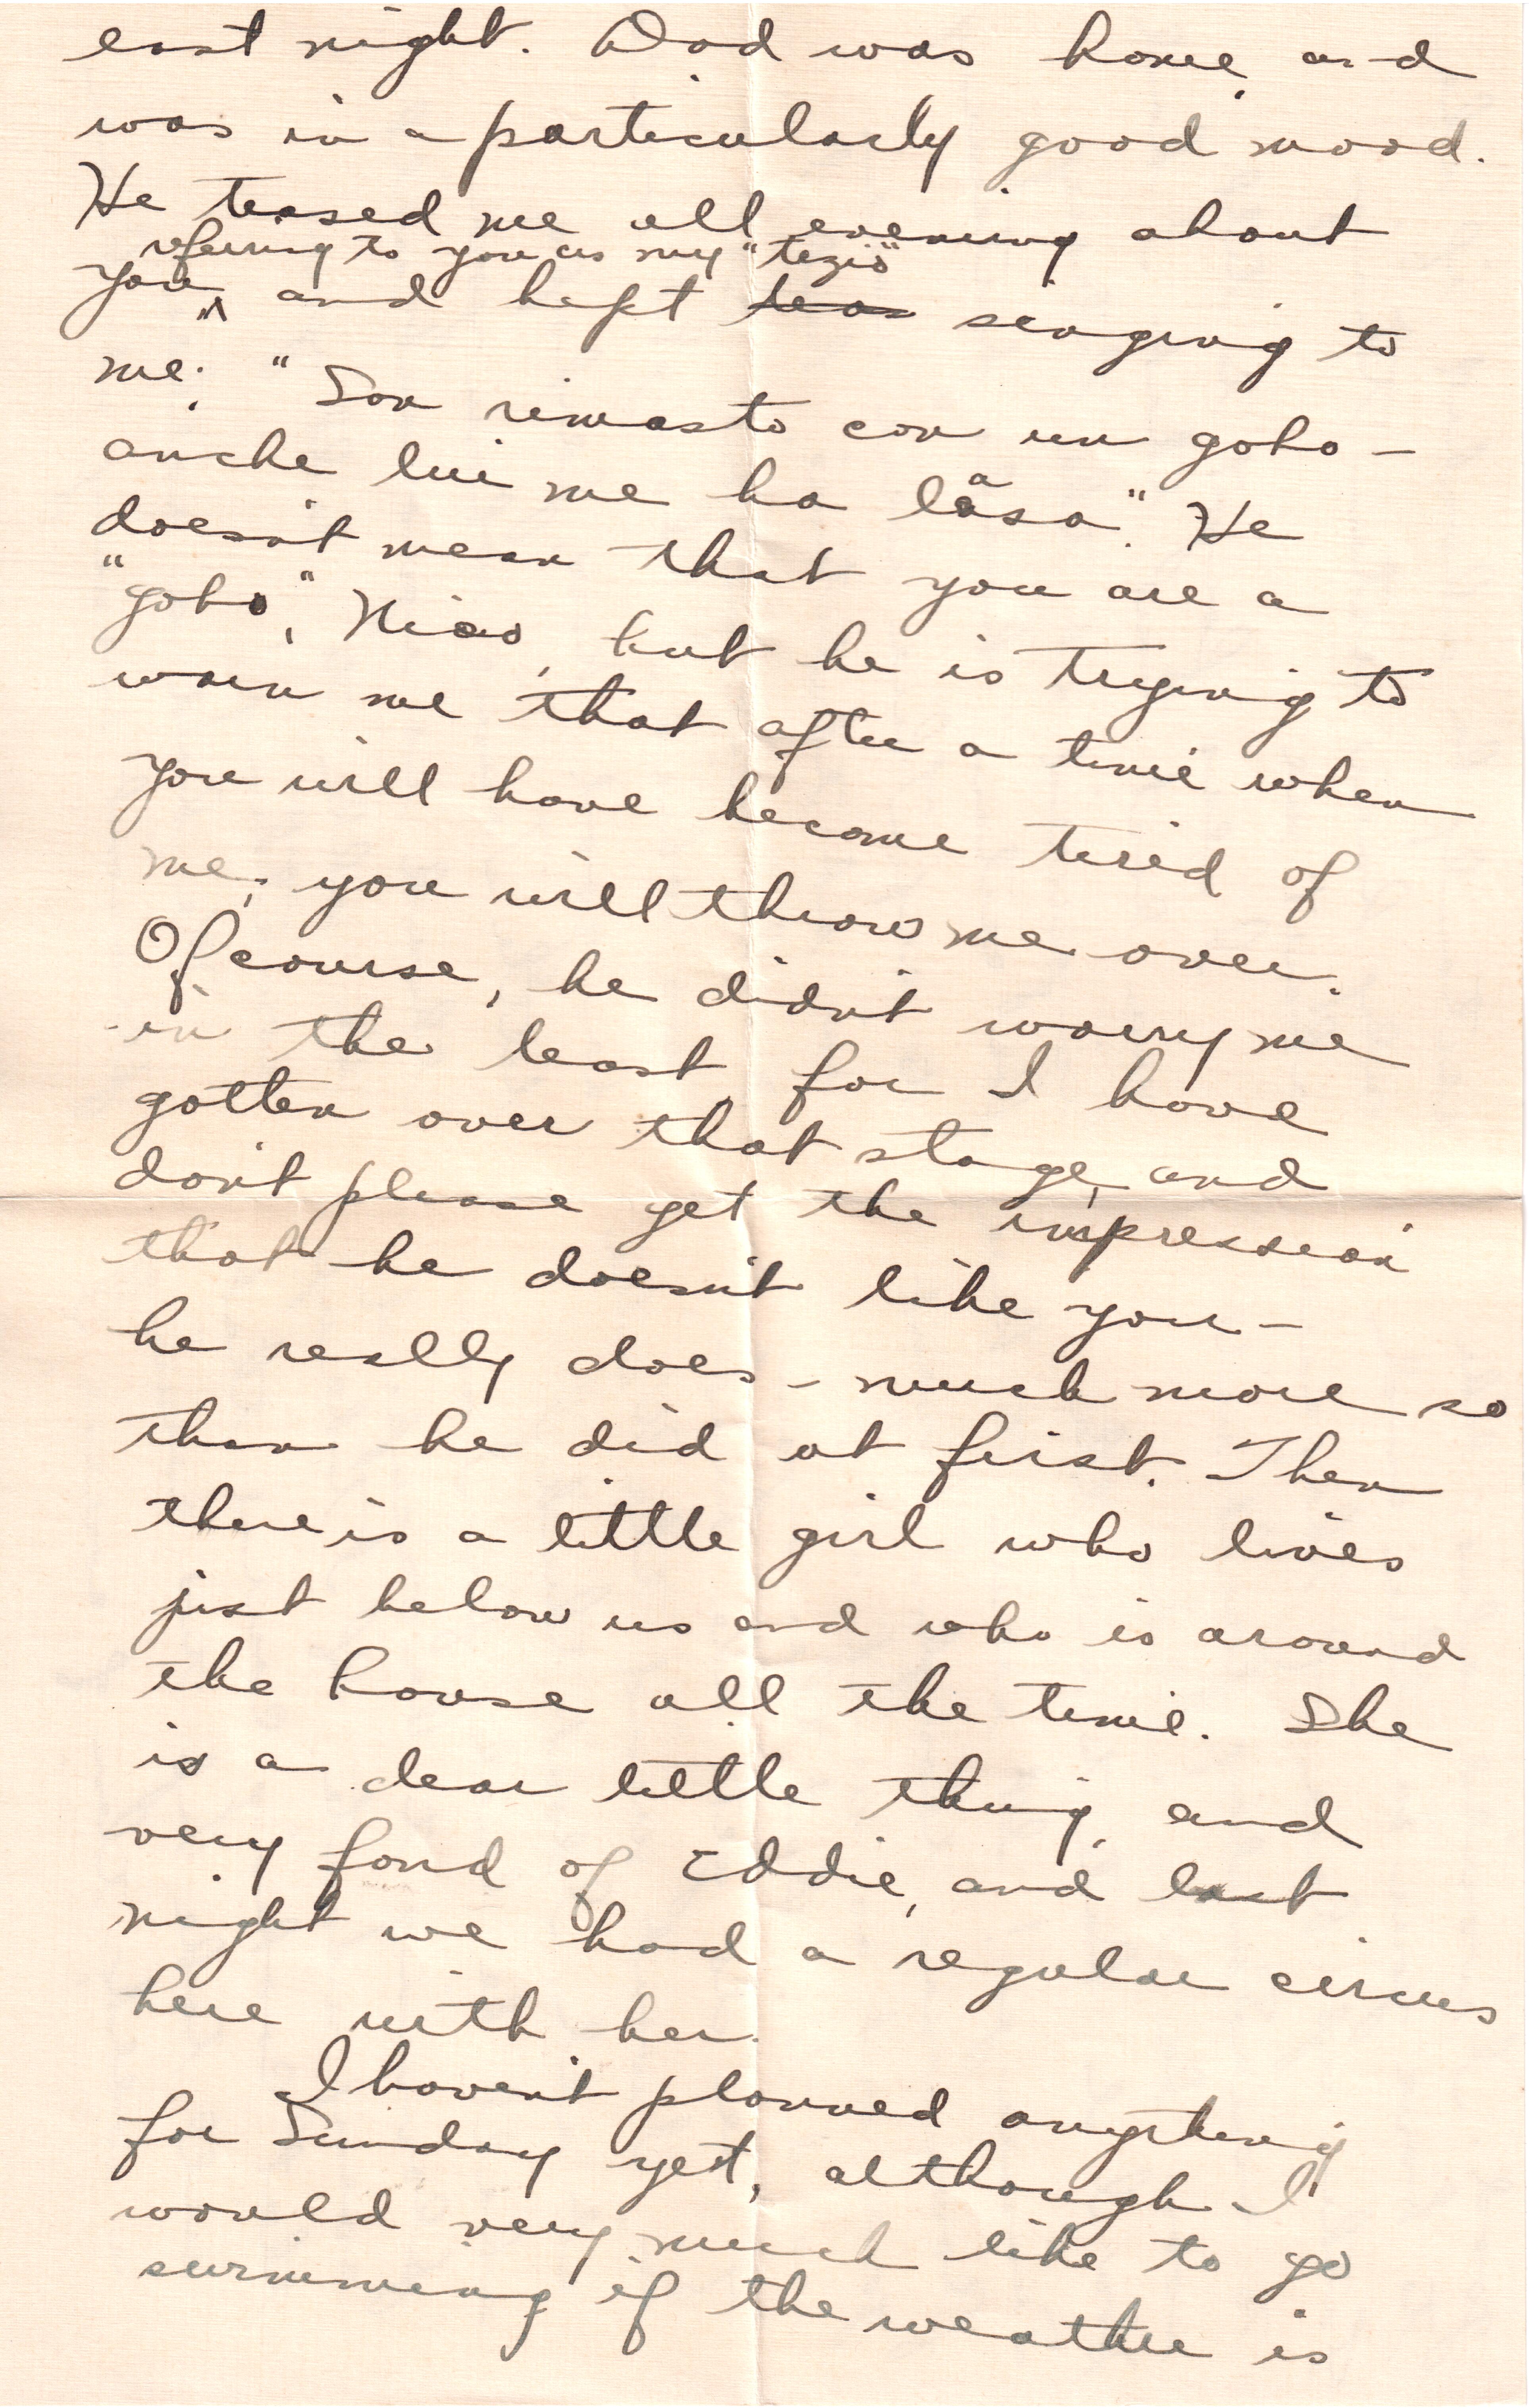 last night. Dad was home, and
was in a particularly good mood.
He teased me all evening about
referring to you as my "tezio"
you, and kept teas singing to
me: "Son rimasto con un gobo -
anche lui me ha lasa". He
doesn't mean that you are a
"gobo", Nino, but he is trying to
warn me that after a time when
you will have become tired of
me, you will throw me over.
Of course, he didn't worry me
in the least, for I have
gotten over that stage, and
don't please get the impression
that he doesn't like you -
he really does - much more so
than he did at first. Then
there is a little girl who lives
just below us and who is around
the house all the time. She
is a dear little thing, and
very fond of Eddie, and last
night we had a regular circus
here with her.
I haven't planned anything
for Sunday yet, although I
would very much like to go
swimming if the weather is